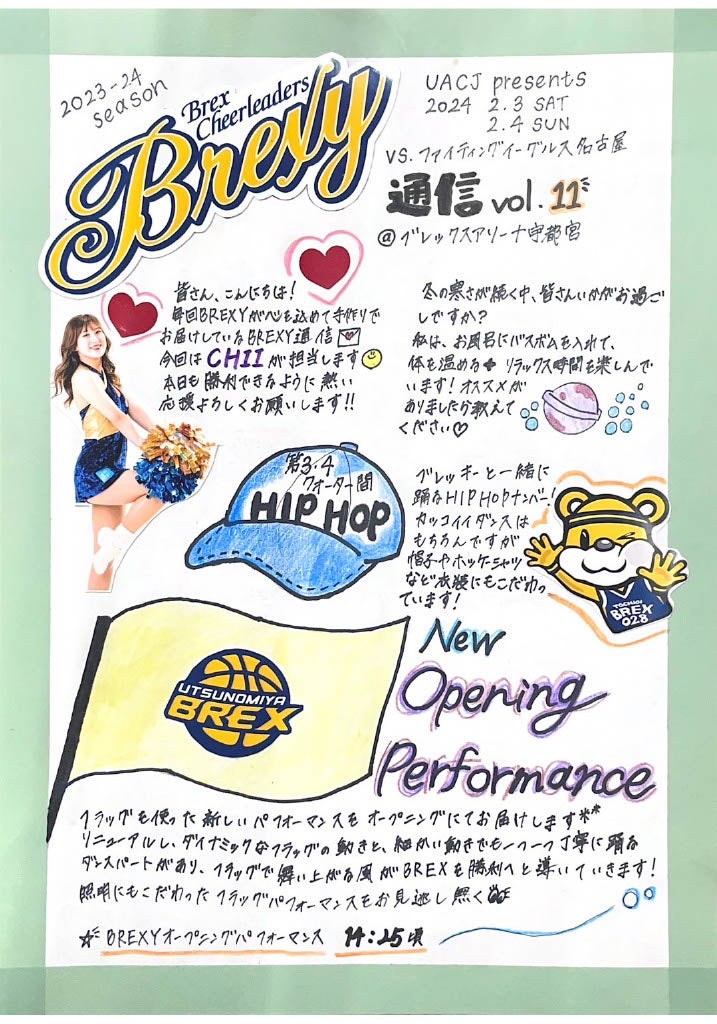 2023-24
season
Brex
Cheerleaders
Brexy
UACJ presents
2024 2.3 SAT
2.4 SUN
VS. ファイティングイーグルス名古屋
通信 vol. 11
@ブレックスアリーナ宇都宮
皆さん、こんにちは!
毎回BREXYが心を込めて手作りで
お届けしているBREXY通信
今回は CHII が担当します
本日も勝利できるように熱い
応援よろしくお願いします!!
冬の寒さが続く中、皆さんいかがお過ご
しですか?
私は、お風呂にバスボムを入れて、
体を温める リラックス時間を楽しんで
います! オススメが
ありましたら教えて
ください♡
第3・4
クォーター間
HIP HOP
ブレッキーと一緒に
踊るHIPHOPナンバー!
カッコイイダンスは
もちろんですが
帽子やホッケーシャツ
など衣装にもこだわっ
ています!
TOCHIGI
BREX
028
UTSUNOMIYA
BREX
New
Opening
Performance
フラッグを使った新しいパフォーマンスをオープニングにてお届けします**
リニューアルし、ダイナミックなフラッグの動きと、細かい動きでも一つ一つ丁寧に踊る
ダンスパートがあり、フラッグで舞い上がる風がBREXを勝利へと導いていきます!
照明にもこだわったフラッグパフォーマンスをお見逃し無く
☆BREXYオープニングパフォーマンス 14:25頃